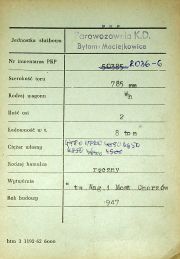 PKP
Jednostka służbowa Parowozownia K.D.
Bytom-Maciejkowice
Nr inwentarza PKP 50385 2036-6
Szerokość toru 785 mm
Rodzaj wagonu Wh
Ilość osi 2
Ładowność w t. 8 ton
Ciężar własny
Rodzaj hamulca ręczny
Wytwórnia "ta Wag. i Most Chorzów
Rok budowy 947